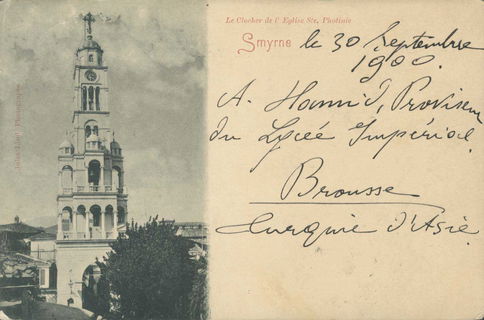 Le Clocher de l'Eglise Ste. Photinie
Smyrne le 30 Septembre
1900.
A. Hamid, Proviseur
du Lycée Impérial.
Brousse
Turquie d'Asie.